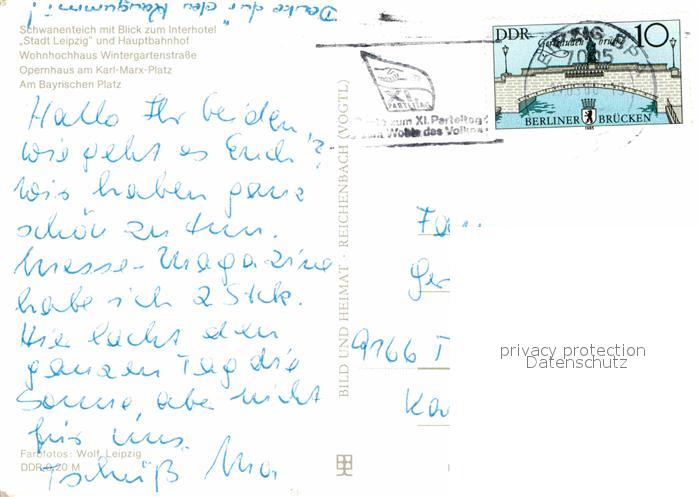 Danke für den Kaugummi!
Schwanenteich mit Blick zum Interhotel
„Stadt Leipzig" und Hauptbahnhof
Wohnhochhaus Wintergartenstraße
Opernhaus am Karl-Marx-Platz
Am Bayrischen Platz
Hallo Ihr beiden!
wie geht es Euch?
wir haben ganz
schön zu tun.
Messe-Magazine
habe ich 2 Stck.
Hier lacht den
ganzen Tag die
Sonne, aber nicht
für uns
Tschüß
Farbfotos: Wolf, Leipzig
DDR 0,20 M
BILD UND HEIMAT · REICHENBACH (VOGTL)
XI.
PARTEITAG
zum XI. Parteitag
zum Wohle des Volkes
DDR
10
BERLINER BRÜCKEN
1985
LEIPZIG BPA
Fam
Ger
9166 T
privacy protection
Datenschutz